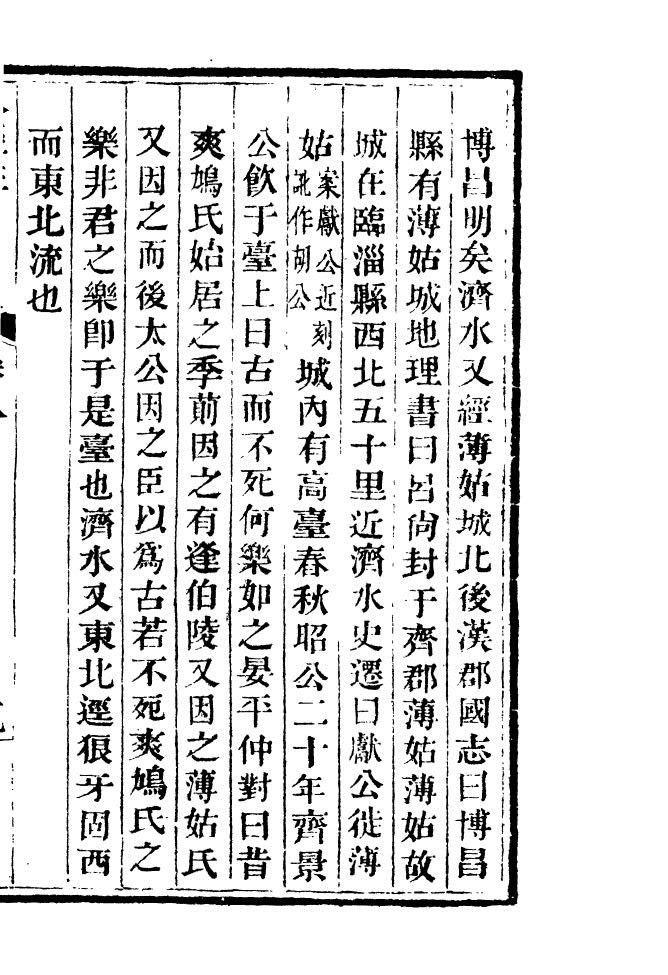 博昌明矣濟水又經薄姑城北後漢郡國志曰博昌
縣有薄姑城地理書曰呂尚封于齊郡薄姑薄姑故
城在臨淄縣西北五十里近濟水史遷曰獻公徙薄
姑案獻公近刻訛作胡公城內有高臺春秋昭公二十年齊景
公飲于臺上曰古而不死何樂如之晏平仲對曰昔
爽鳩氏始居之季萴因之有逢伯陵又因之薄姑氏
又因之而後太公因之臣以爲古若不死爽鳩氏之
樂非君之樂卽于是臺也濟水又東北逕狼牙固西
而東北流也